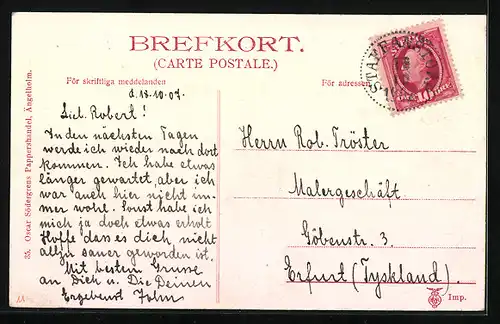 BREFKORT.
(CARTE POSTALE.)
För skriftliga meddelanden
För adressen
d. 18-10-07.
Lieb. Robert!
In den nächsten Tagen
werde ich wieder nach dort
kommen. Ich habe etwas
länger gewartet, aber ich
war auch hier nicht im-
mer wohl. Sonst habe ich
mich ja doch etwas erholt
Hoffe dass es dich nicht
allzu sauer geworden ist.
Mit bestem Grusse
an Dich u. Die Deinen
Ergebenst John
Herrn Rob. Tröster
Malergeschäft
Göbenstr. 3.
Erfurt (Tyskland).
35. Oscar Södergrens Pappershandel, Ängelholm.
Imp.
STAFFA
10